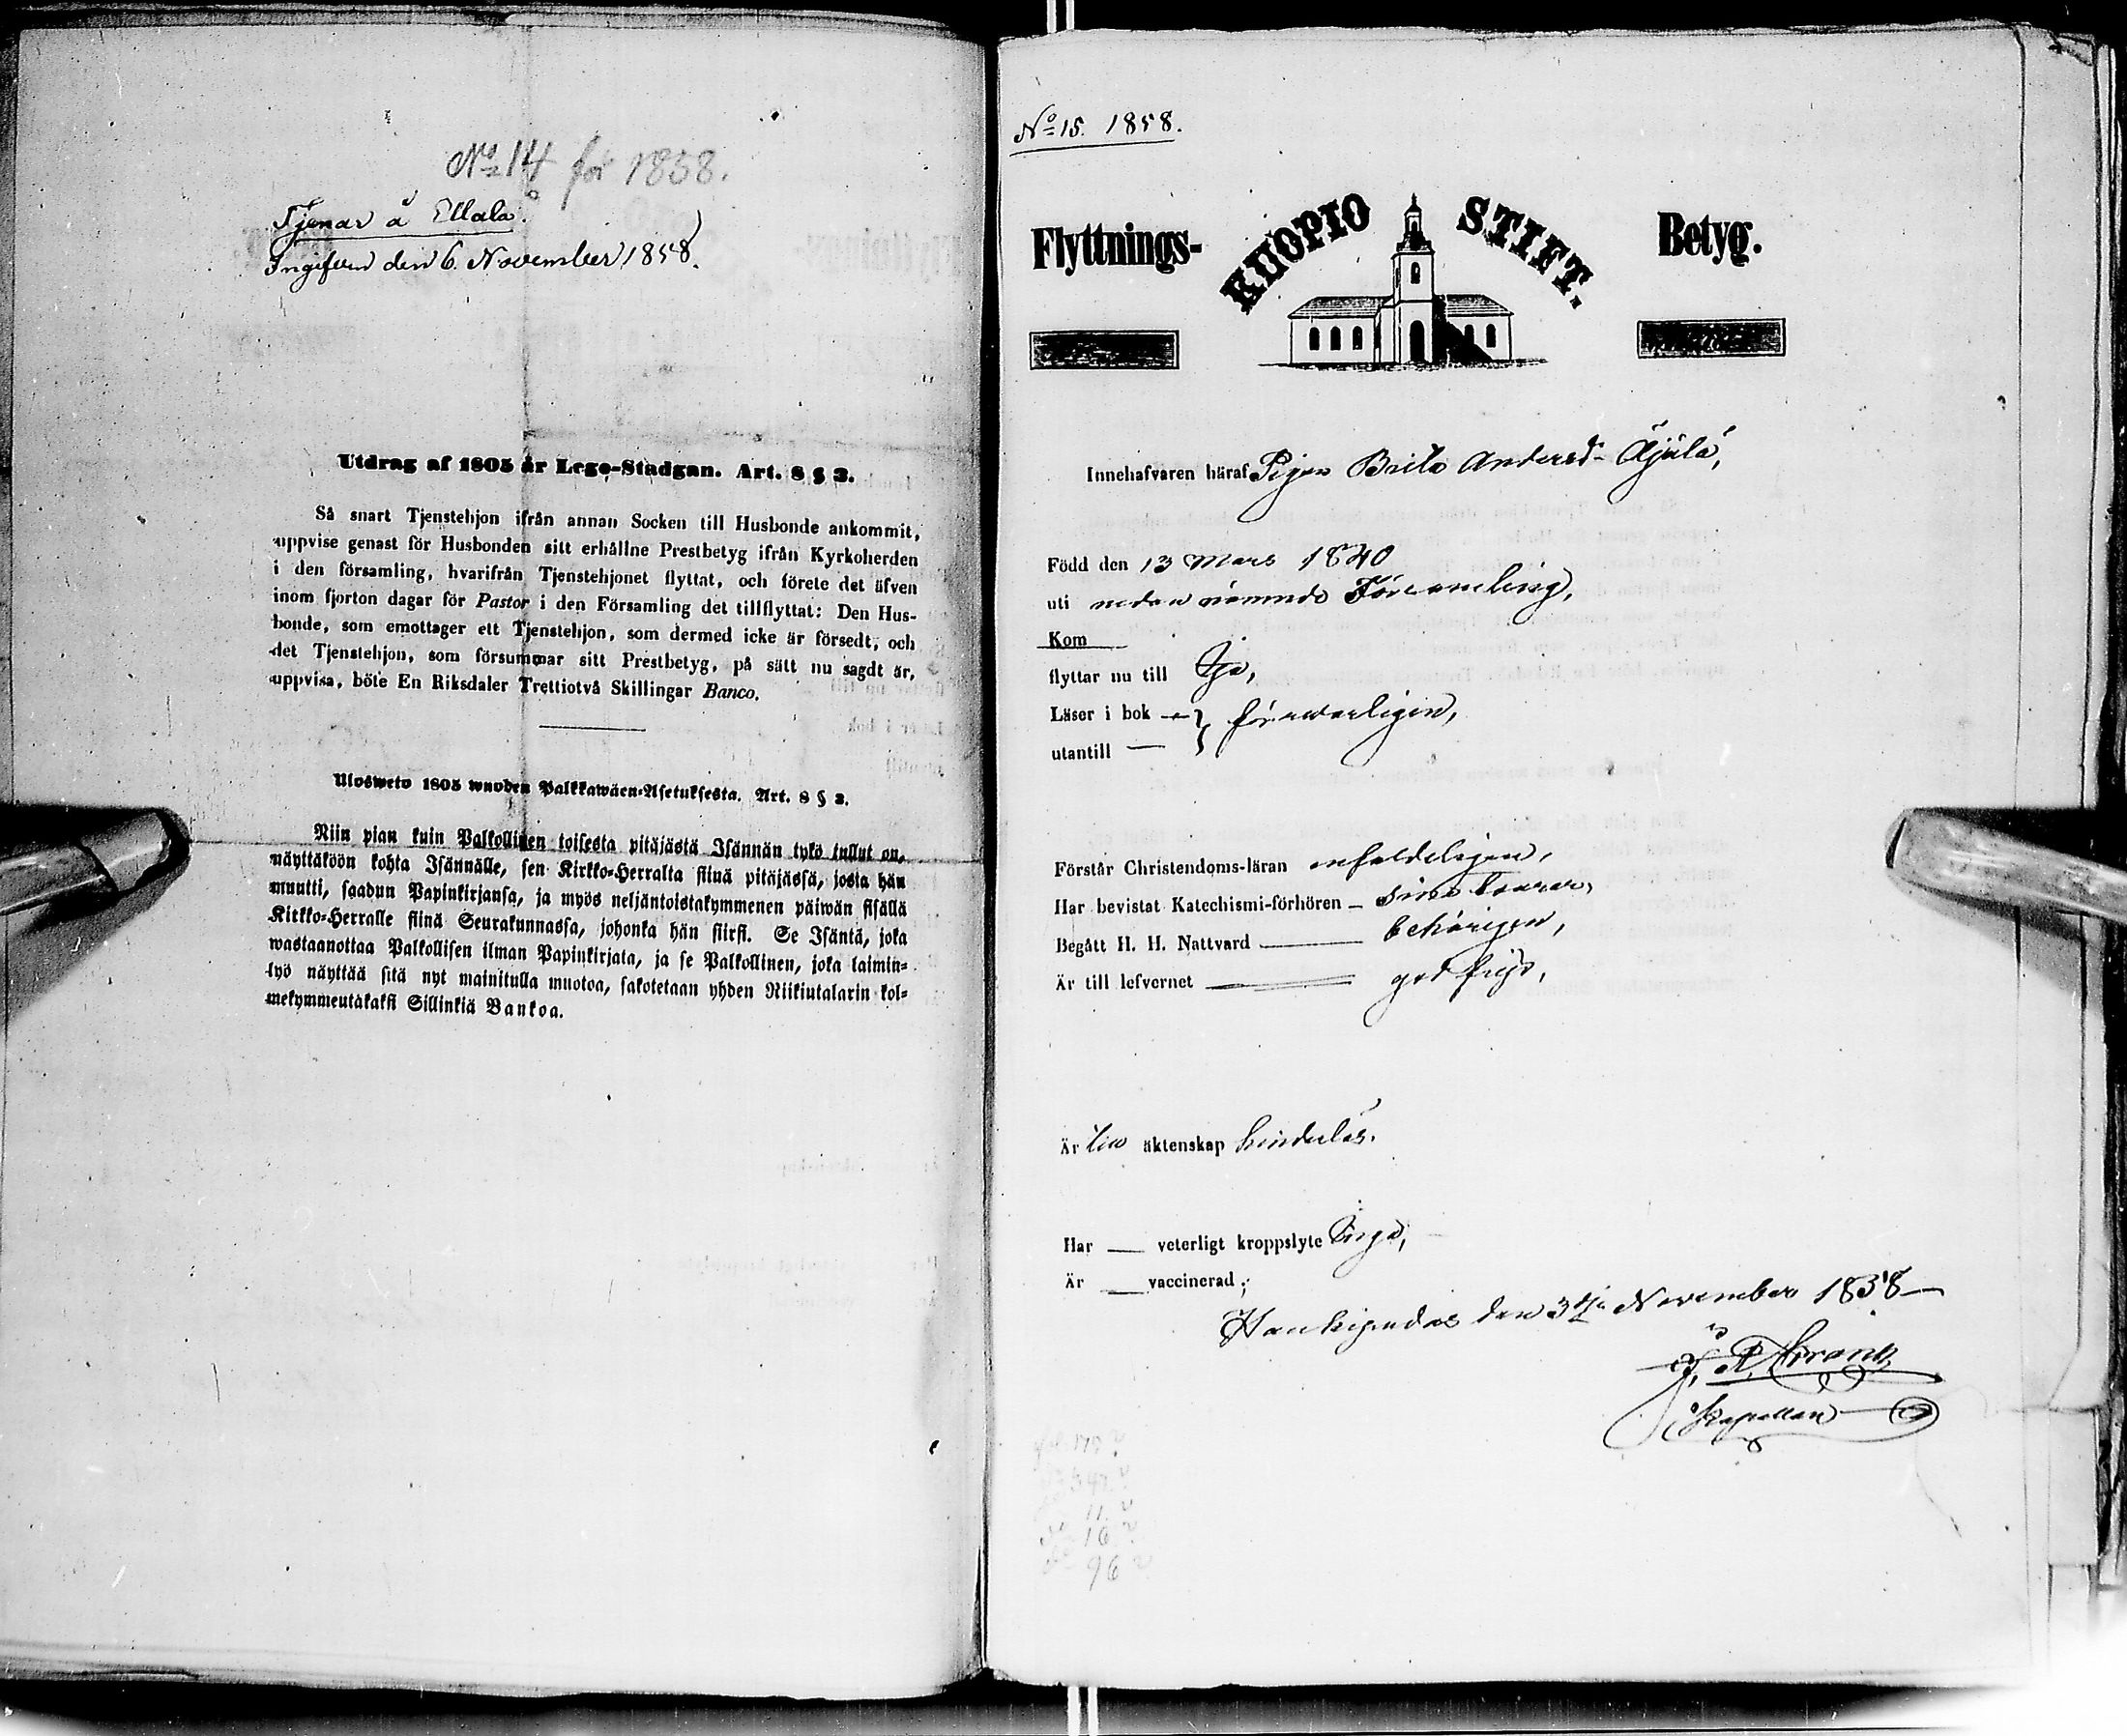 No 14 för 1858.
Tjenar å Ellala.
Ingifven den 6. November 1858.
Utdrag af 1805 år Lego-Stadgan. Art. 8 § 3.
Så snart Tjenstehjon ifrån annan Socken till Husbonde ankommit,
uppvise genast för Husbonden sitt erhållne Prestbetyg ifrån Kyrkoherden
i den församling, hvarifrån Tjenstehjonet flyttat, och förete det äfven
inom fjorton dagar för Pastor i den Församling det tillflyttat: Den Hus-
bonde, som emottager ett Tjenstehjon, som dermed icke är försedt, och
det Tjenstehjon, som försummar sitt Prestbetyg, på sätt nu sagdt är,
uppvisa, böte En Riksdaler Trettiotvå Skillingar Banco.
Ulosweto 1805 wuoden Palkkawäen-Asetuksesta. Art. 8 § 3.
Niin pian kuin Palkollinen toisesta pitäjästä Isännän tykö tullut on,
näyttäköön kohta Isännälle, sen Kirkko-Herralta siinä pitäjässä, josta hän
muutti, saadun Papinkirjansa, ja myös neljäntoistakymmenen päiwän sisällä
Kirkko-Herralle siinä Seurakunnassa, johonka hän siirsi. Se Isäntä, joka
wastaanottaa Palkollisen ilman Papinkirjata, ja se Palkollinen, joka laimin-
lyö näyttää sitä nyt mainitulla muotoa, sakotetaan yhden Riikintalarin kol-
mekymmentäkaksi Sillinkiä Bankoa.
No 15. 1858.
Flyttnings- KUOPIO STIFT. Betyg.
Innehafvaren häraf Pigan Brita Andersd. Äjälä,
Född den 13 Mars 1840
uti nedannämnde Församling,
Kom
flyttar nu till Ijo,
Läser i bok } försvarligen,
utantill
Förstår Christendoms-läran enfaldeligen,
Har bevistat Katechismi-förhören sina
Begått H. H. Nattvard behörigen,
Är till lefvernet god frejd,
Är till äktenskap hinderlös.
Har veterligt kroppslyte Inga,
Är vaccinerad;
Haukipudas den 3dje November 1858
J. R. Franck
Kapellan
175
547
11
16
96